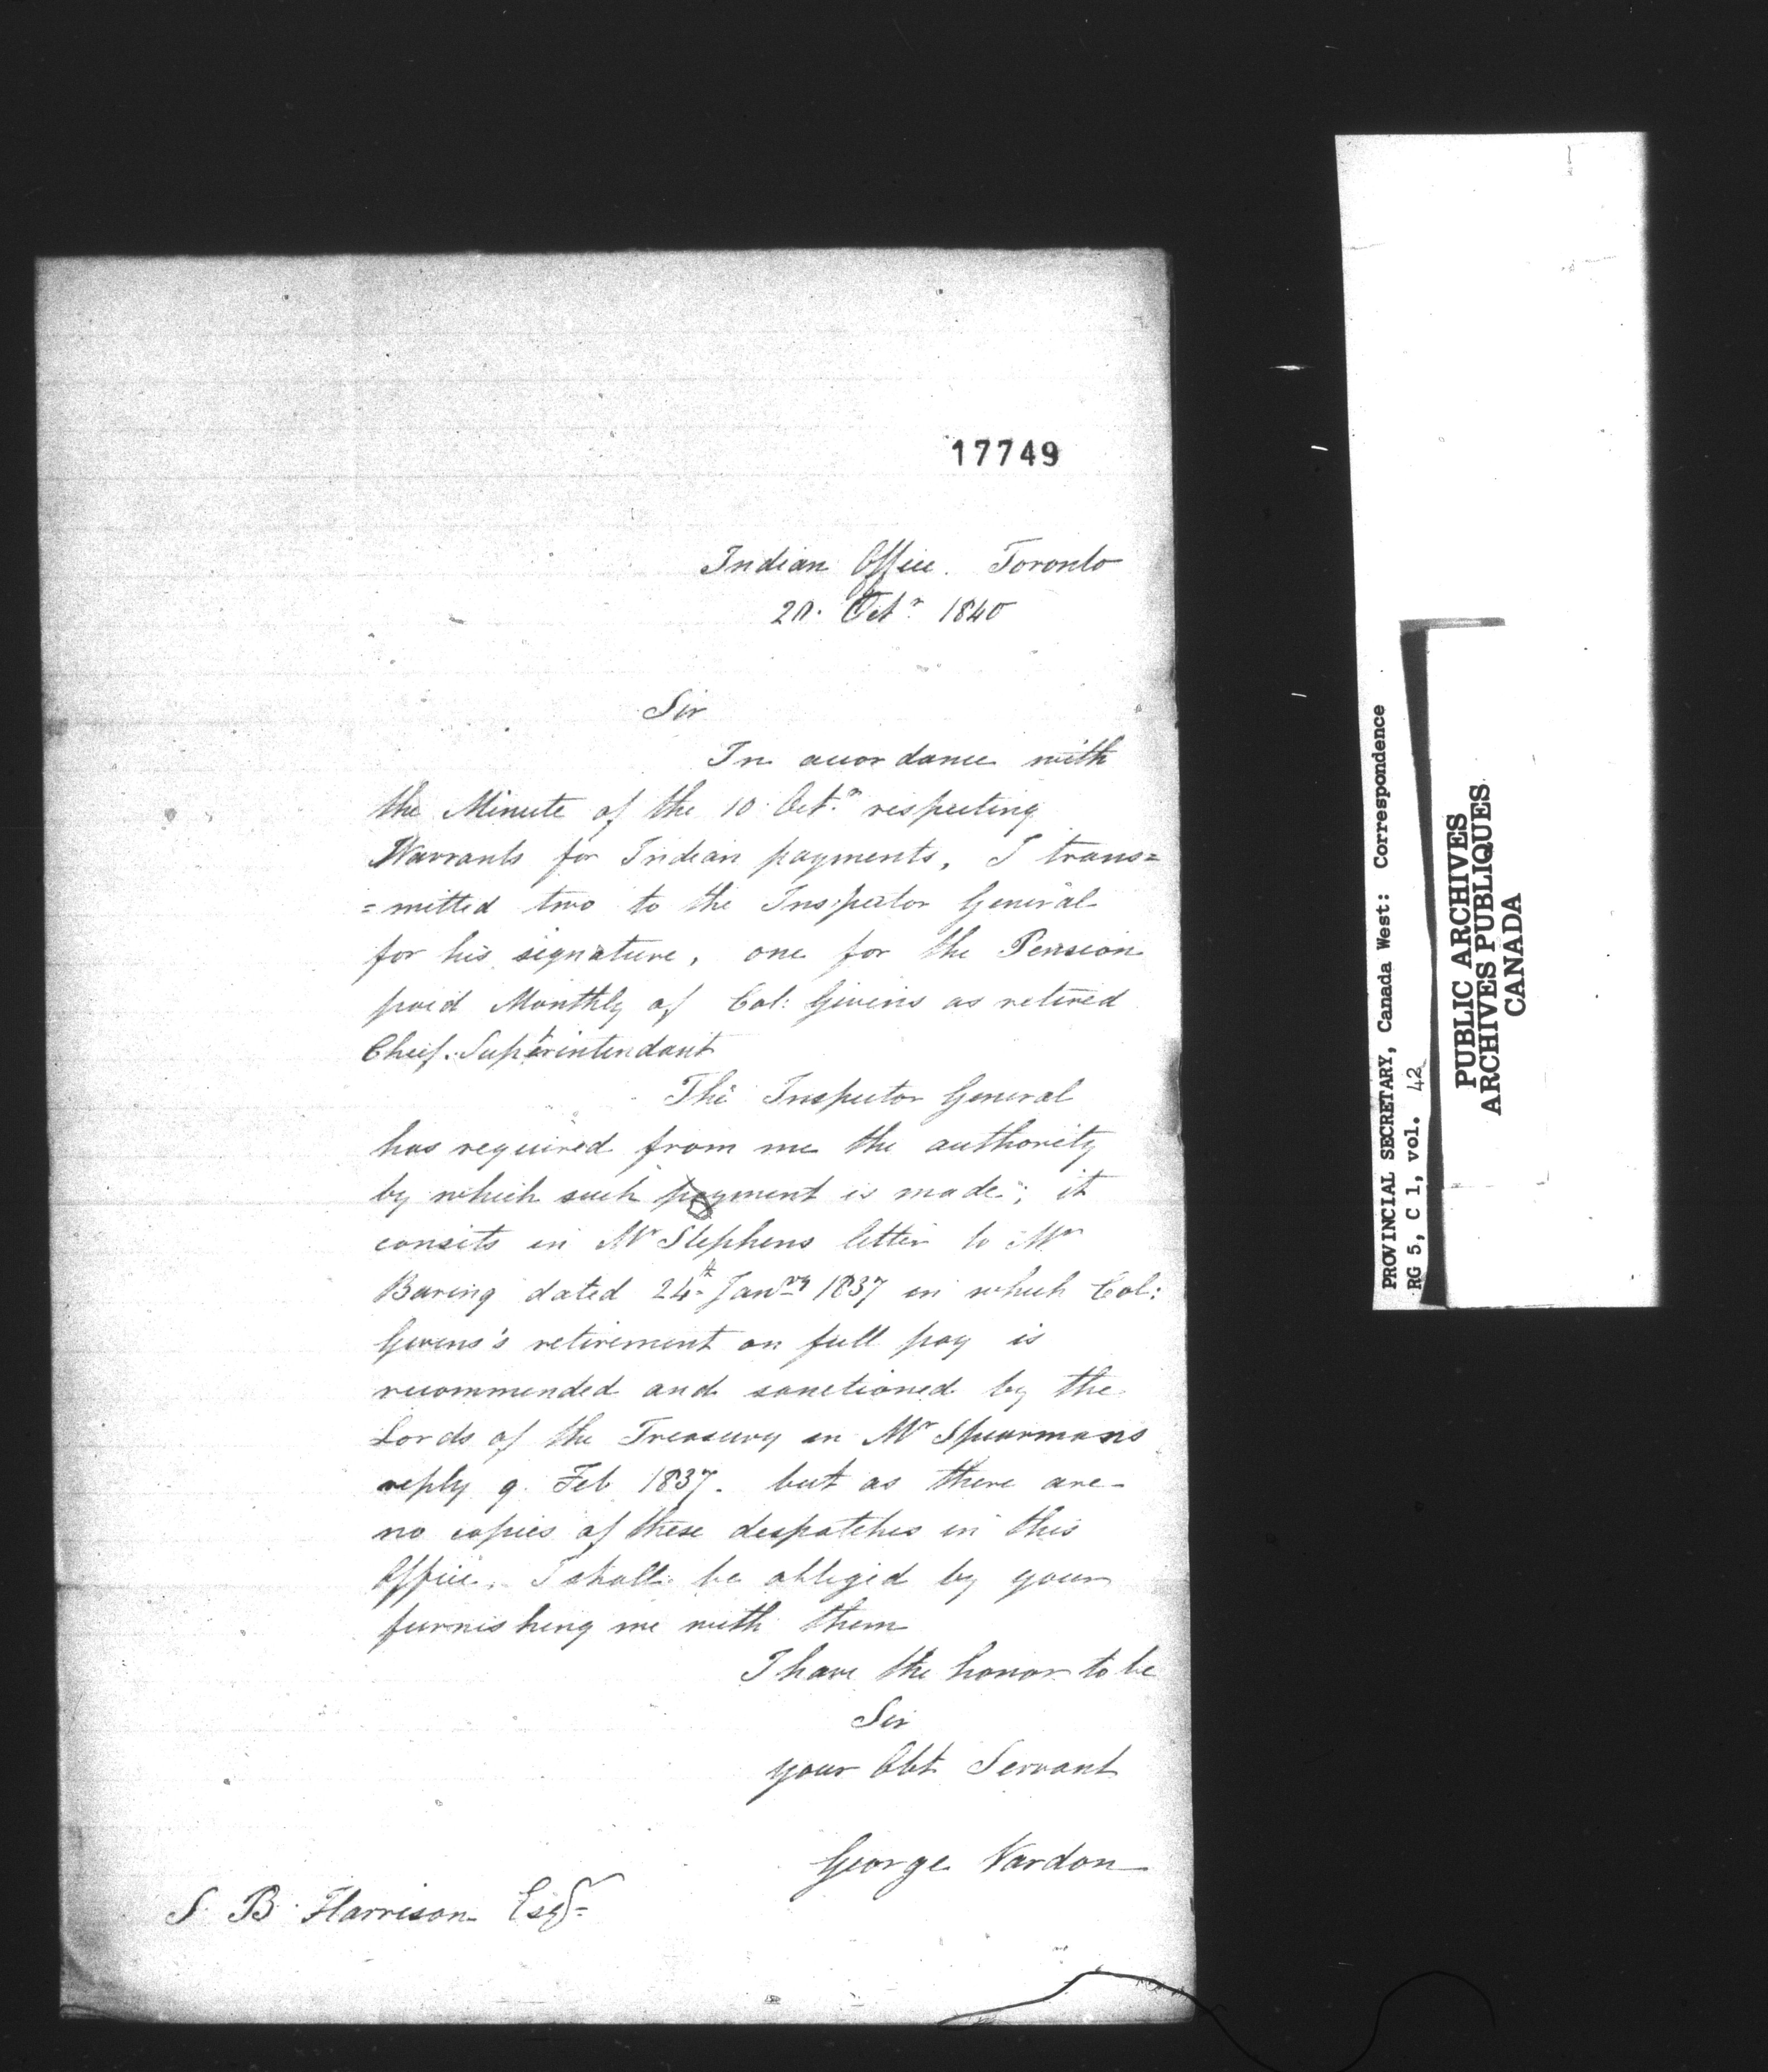 17749
Indian Office. Toronto
Octr 1840
Sir
In accordance with
the Minute of the 10. Octr respecting
Warrants for Indian payments, I trans=
=mitted two to the Inspector General
for his signature, one for the Pension
paid Monthly of Col: Givins as retired
Chief. Superintendant
The Inspector General
has required from me the authority
by which such payment is made; it
consits in Mr Stephens letter to Mr
Baring dated 24th Janry 1837 in which Col:
Givens's retirement on full pay is
recommended and sanctioned by the
Lords of the Treasury in Mr Spearmans
reply 9. Feb 1837. but as there are
no copies of these despatches in this
Office. I shall be obliged by your
furnishing me with them
I have the honor to be
Sir
your Obt Servant
George Vardon
S. B. Harrison Esqr
PROVINCIAL SECRETARY, Canada West: Correspondence
RG 5, C 1, vol. 42
PUBLIC ARCHIVES
ARCHIVES PUBLIQUES
CANADA